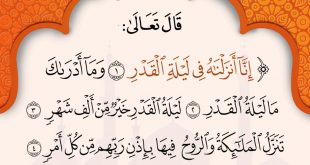 قَالَ تَعَالَى:
﴿ إِنَّا أَنزَلْنَٰهُ فِي لَيْلَةِ الْقَدْرِ ١ وَمَا أَدْرَىٰكَ
مَا لَيْلَةُ الْقَدْرِ ٢ لَيْلَةُ الْقَدْرِ خَيْرٌ مِّنْ أَلْفِ شَهْرٍ ٣
تَنَزَّلُ الْمَلَٰئِكَةُ وَالرُّوحُ فِيهَا بِإِذْنِ رَبِّهِم مِّن كُلِّ أَمْرٍ ٤